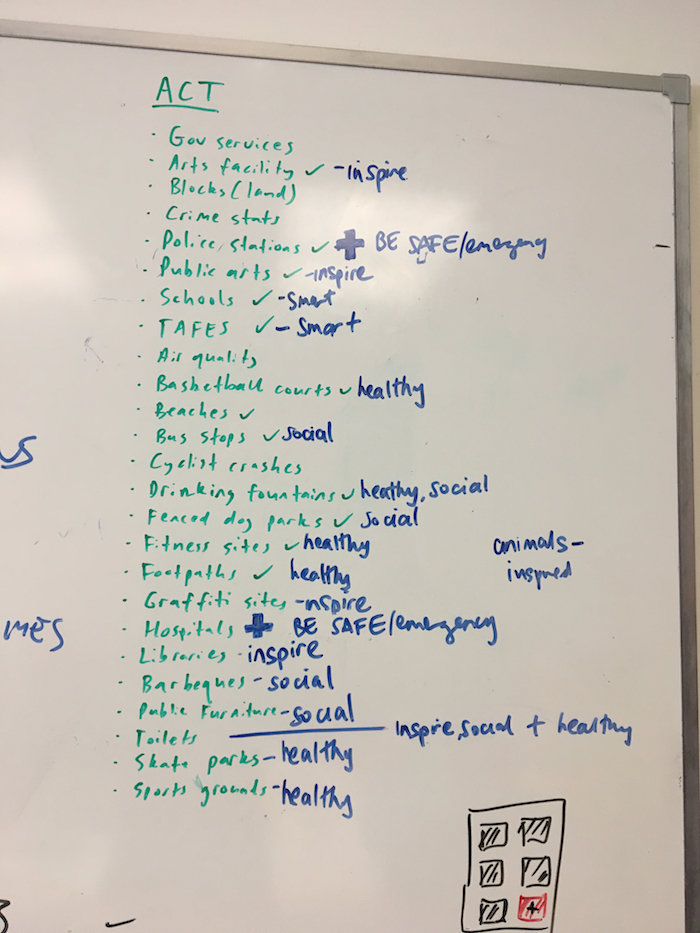 ACT
· Gov services
· Arts facility ✓ - inspire
· Blocks (land)
· Crime stats
· Police stations ✓ + BE SAFE/emergency
· Public arts ✓ - inspire
· Schools ✓ - smart
· TAFES ✓ - smart
· Air quality
· Basketball courts ✓ healthy
· Beaches ✓
· Bus stops ✓ social
· Cyclist crashes
· Drinking fountains ✓ healthy, social
· Fenced dog parks ✓ social
· Fitness sites ✓ healthy
animals -
inspired
· Footpaths ✓ healthy
· Graffiti sites - nspire
MES
· Hospitals + BE SAFE/emergency
· Libraries - inspire
· Barbeques - social
· Public Furniture - social
· Toilets inspire, social + healthy
· Skate parks - healthy
· Sports grounds - healthy
+